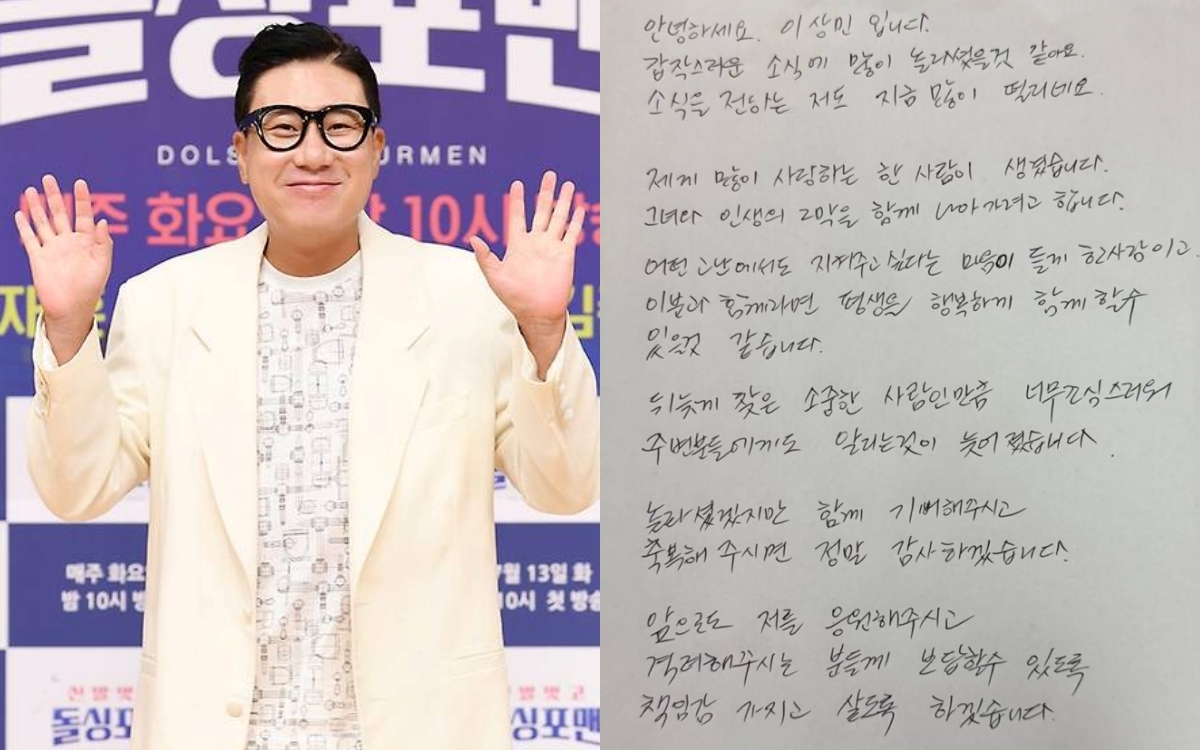 돌싱포맨
DOLS
URMEN
주 화요
10시
매주 화요
밤 10시 방
7월 13일 화
10시 첫 방송
신발 벗고
돌싱포맨
안녕하세요. 이상민 입니다.
갑작스러운 소식에 많이 놀라셨을것 같아요.
소식을 전하는 저도 지금 많이 떨리네요.
제게 많이 사랑하는 한 사람이 생겼습니다.
그녀와 인생의 2막을 함께 나아가려고 합니다.
어떤 고난에서도 지켜주고 싶다는 마음이 들게 한 사람이고
이분과 함께라면 평생을 행복하게 함께 할수
있을것 같습니다.
뒤늦게 찾은 소중한 사람인만큼 너무조심스러워
주변분들에게도 알리는것이 늦어졌습니다.
놀라셨겠지만 함께 기뻐해주시고
축복해 주시면 정말 감사하겠습니다.
앞으로도 저를 응원해주시고
격려해주시는 분들께 보답할수 있도록
책임감 가지고 살도록 하겠습니다.